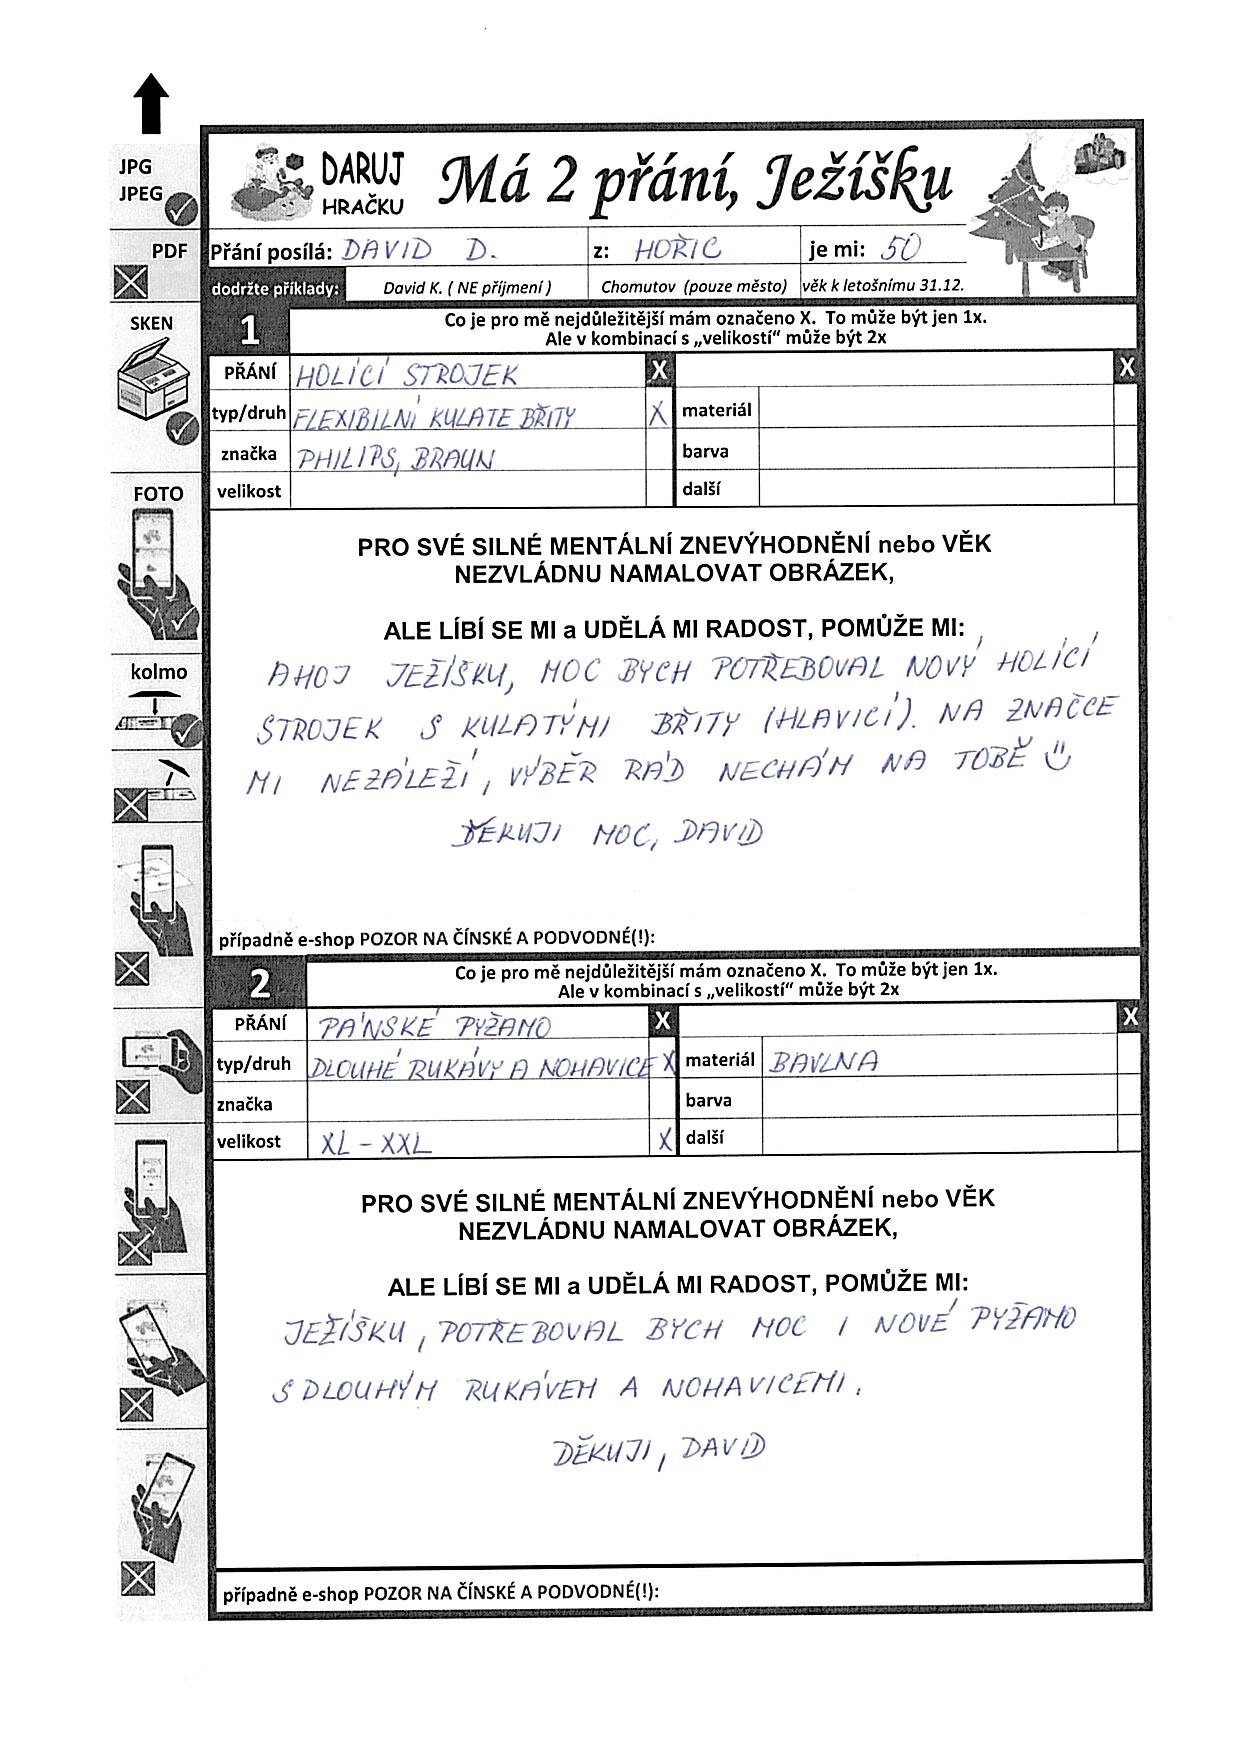 JPG
JPEG
PDF
SKEN
FOTO
kolmo
DARUJ
HRAČKU
Má 2 přání, Ježíšku
Přání posílá: DAVID D. z: HOŘIC je mi: 50
dodržte příklady: David K. ( NE příjmení ) Chomutov (pouze město) věk k letošnímu 31.12.
1
Co je pro mě nejdůležitější mám označeno X. To může být jen 1x.
Ale v kombinací s „velikostí“ může být 2x
PŘÁNÍ HOLÍCÍ STROJEK X X
typ/druh FLEXIBILNÍ KULATE BŘITY X materiál
značka PHILIPS, BRAUN barva
velikost další
PRO SVÉ SILNÉ MENTÁLNÍ ZNEVÝHODNĚNÍ nebo VĚK
NEZVLÁDNU NAMALOVAT OBRÁZEK,
ALE LÍBÍ SE MI a UDĚLÁ MI RADOST, POMŮŽE MI:
AHOJ JEŽÍŠKU, MOC BYCH POTŘEBOVAL NOVÝ HOLÍCÍ
STROJEK S KULATÝMI BŘITY (HLAVICÍ). NA ZNAČCE
MI NEZÁLEŽÍ, VÝBĚR RÁD NECHÁM NA TOBĚ
DĚKUJI MOC, DAVID
případně e-shop POZOR NA ČÍNSKÉ A PODVODNÉ(!):
2
Co je pro mě nejdůležitější mám označeno X. To může být jen 1x.
Ale v kombinací s „velikostí“ může být 2x
PŘÁNÍ PÁNSKÉ PYŽAMO X X
typ/druh DLOUHÉ RUKÁVY A NOHAVICE X materiál BAVLNA
značka barva
velikost XL - XXL X další
PRO SVÉ SILNÉ MENTÁLNÍ ZNEVÝHODNĚNÍ nebo VĚK
NEZVLÁDNU NAMALOVAT OBRÁZEK,
ALE LÍBÍ SE MI a UDĚLÁ MI RADOST, POMŮŽE MI:
JEŽÍŠKU, POTŘEBOVAL BYCH MOC I NOVÉ PYŽAMO
S DLOUHÝM RUKÁVEM A NOHAVICEMI.
DĚKUJI, DAVID
případně e-shop POZOR NA ČÍNSKÉ A PODVODNÉ(!):